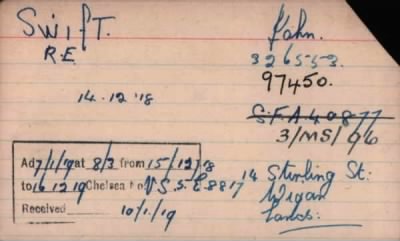 SWIFT.
R.E
14.12.18
Kahn.
326553.
97450.
S.F.A 40877
3/MS/ 96
Ad 7/1/19 at 8/3 from 15/12/18
to 16 12 19 Chelsea to V.S.S.E 8817
Received 10/1/19
14 Stirling St:
Wigan
Lancs: